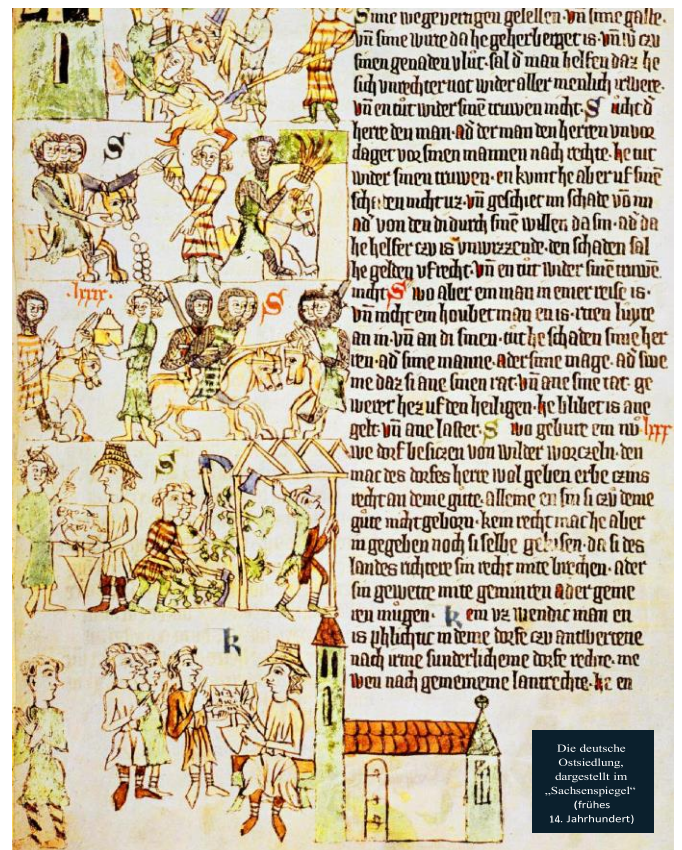 Sime wegevertigen gesellen. vn̄ sime gaste.
vn̄ sime wirte da he geherberget is. vn̄ czu
sinen genaden vlut. sal d͛ man helfen daz he
sich vnrechter not wider aller menlich irwere.
vn̄ en tut wider sinē truwen nicht. S ucht d͛
herre den man. ad͛ der man den herren vnvor
daget vor sinen mannen nach rechte. he tut
wider sinen truwen. en kumt he aber uf sinē
schaden nicht uz. vn̄ geschiet im schade vō im
ad͛ von den di durch sinē willen da sin. ad͛ da
he helfer czu is vnwizzende. den schaden sal
he gelden uf recht. vn̄ en tut wider sinē truwē
nicht. S wo aber ein man in einer reise is.
vn̄ nicht ein houbetman en is. riten lupte
an in. vn̄ an di sinen. tut he schaden sime her
ren. ad͛ sime manne. ader sime mage. ad͛ swe
me daz si ane sinen rat. vn̄ ane sine tat. ge
weret hez uf den heiligen. he blibet is ane
gelt. vn̄ ane laster. S wo gebure ein nu
we dorf besiczen von wilder worczeln. den
mac des dorfes herre wol geben erbe czins
recht an deme gute. alleine en sin si czu deme
gute nicht geborn. kein recht mac he aber
in gegeben noch si selbe gekisen. da si des
landes richtere sin recht mite brechen. ader
sin gewette mite geminren ader geme
ren mugen. k ein vz wendic man en
is phlichtic in deme dorfe czu antwertene
nach irme sunderlicheme dorfe rechte. me
wen nach gemeineme lantrechte. he en
S
.lxxx.
S
S
lxxx
k
Die deutsche
Ostsiedlung,
dargestellt im
„Sachsenspiegel“
(frühes
14. Jahrhundert)